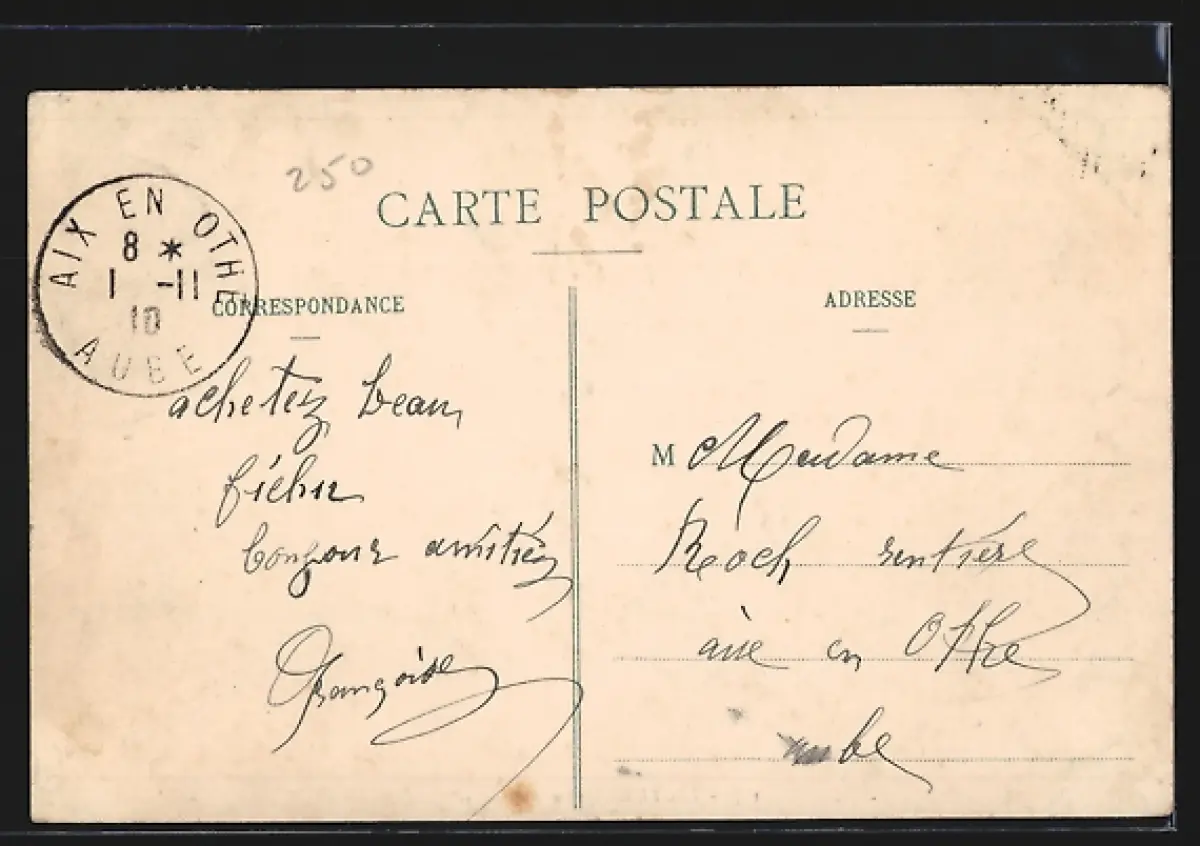 250
CARTE POSTALE
AIX EN OTHE
8 *
1 -11
10
AUBE
CORRESPONDANCE
achetez beau
fichu
bonjour amitiés
Françoise
ADRESSE
M Madame
Roch rentière
aix en Othe
aube